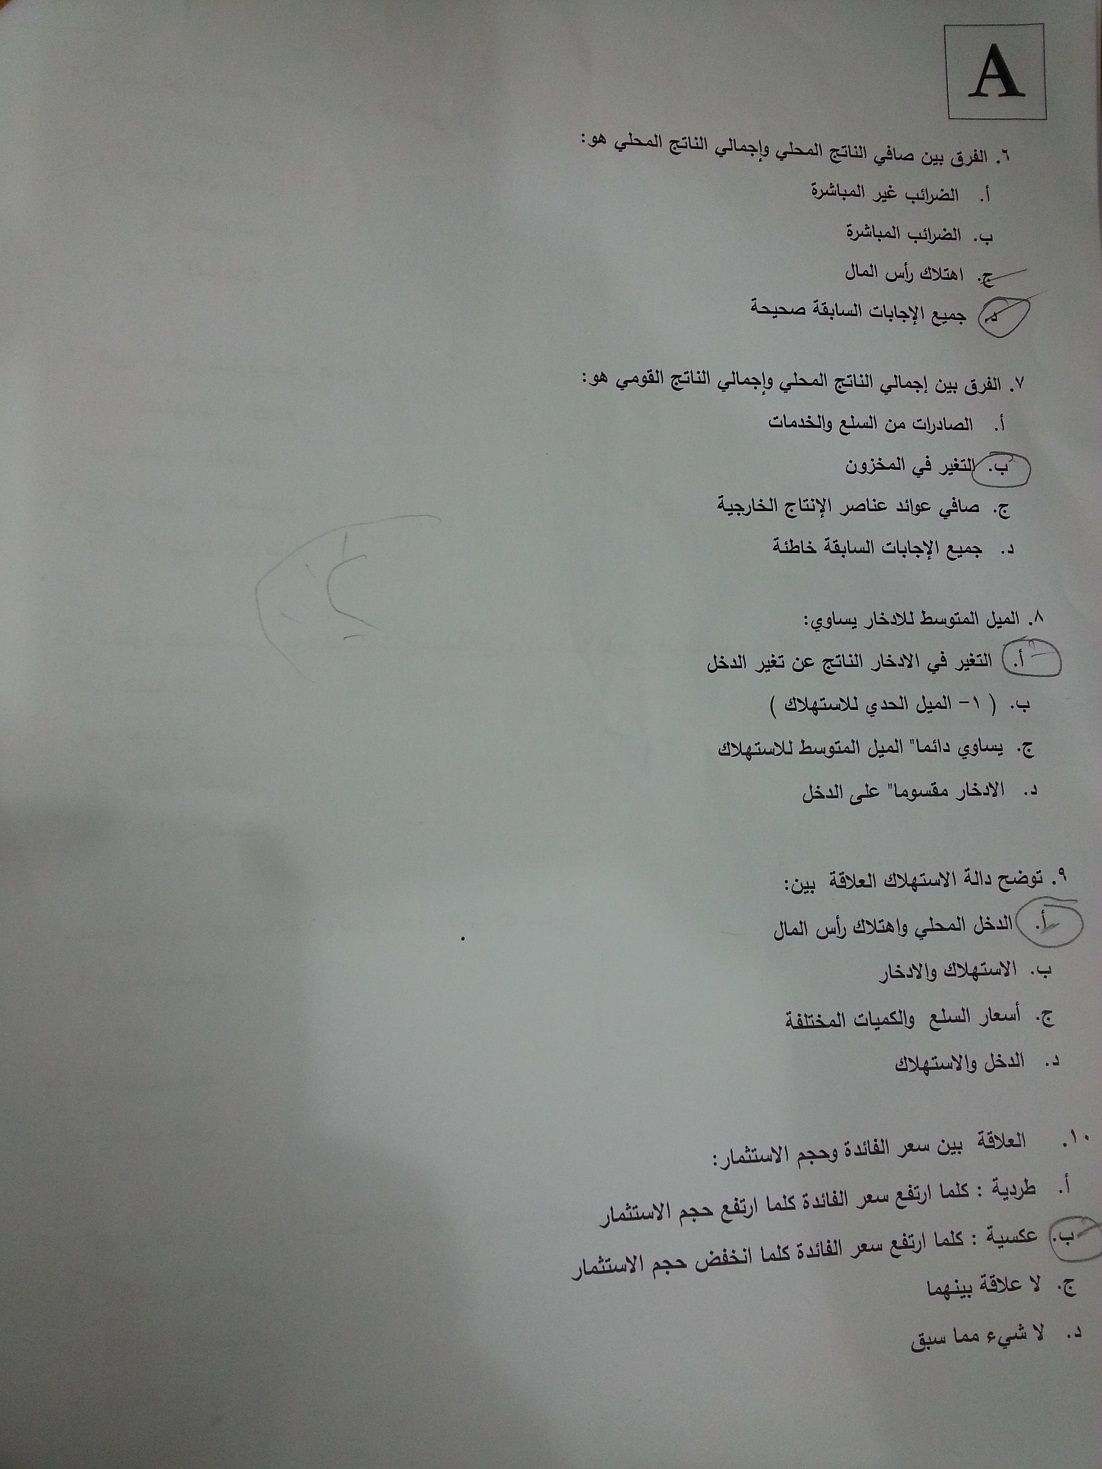 A
٦. الفرق بين صافي الناتج المحلي وإجمالي الناتج المحلي هو:
أ. الضرائب غير المباشرة
ب. الضرائب المباشرة
ج. اهتلاك رأس المال
د. جميع الإجابات السابقة صحيحة
٧. الفرق بين إجمالي الناتج المحلي وإجمالي الناتج القومي هو:
أ. الصادرات من السلع والخدمات
ب. التغير في المخزون
ج. صافي عوائد عناصر الإنتاج الخارجية
د. جميع الإجابات السابقة خاطئة
٨. الميل المتوسط للادخار يساوي:
أ. التغير في الادخار الناتج عن تغير الدخل
ب. ( ١- الميل الحدي للاستهلاك )
ج. يساوي دائما" الميل المتوسط للاستهلاك
د. الادخار مقسوما" على الدخل
٩. توضح دالة الاستهلاك العلاقة بين:
أ. الدخل المحلي واهتلاك رأس المال
ب. الاستهلاك والادخار
ج. أسعار السلع والكميات المختلفة
د. الدخل والاستهلاك
١٠. العلاقة بين سعر الفائدة وحجم الاستثمار:
أ. طردية : كلما ارتفع سعر الفائدة كلما ارتفع حجم الاستثمار
ب. عكسية : كلما ارتفع سعر الفائدة كلما انخفض حجم الاستثمار
ج. لا علاقة بينهما
د. لا شيء مما سبق